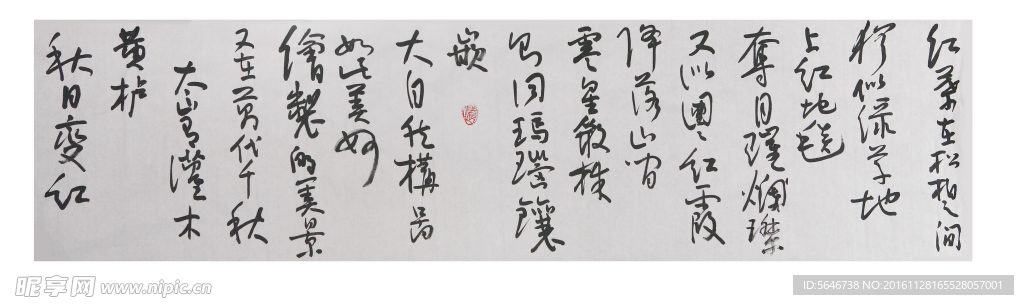 红叶在松柏之间
犹似绿草地
上红地毯
夺目璀灿璨
又似团之红霞
降落山间
零星散株
即同玛瑙镶
嵌
大自然構图
如此美妙
繪製的美景
又在前代千秋
太岁灌木
黄栌
秋日变红
昵享网 www.nipic.cn
ID:5646738 NO:20161128165528057001